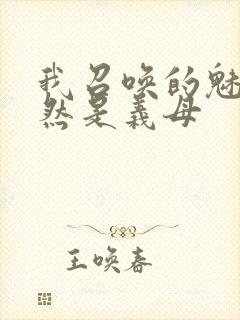 我召唤的魅
然是义母
王唤春